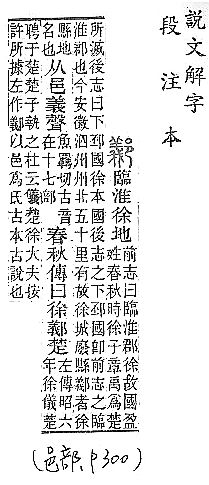 說文解字
段注本
䣡臨淮徐地
前志曰臨淮郡徐故國盈
姓春秋時徐子章禹爲楚
所滅後志曰下邳國徐本國後志之下邳國卽前志之臨
淮郡也今安徽泗州州北五十里有故徐城廢縣䣡者徐
縣地
名也
从邑義聲
魚羈切古音
在十七部
春秋傳曰徐䣡楚
左傳昭六
年徐儀楚
聘于楚楚子執之杜云儀楚徐大夫按
許所據左作䣡以邑爲氏古本古說也
(邑部, P300)